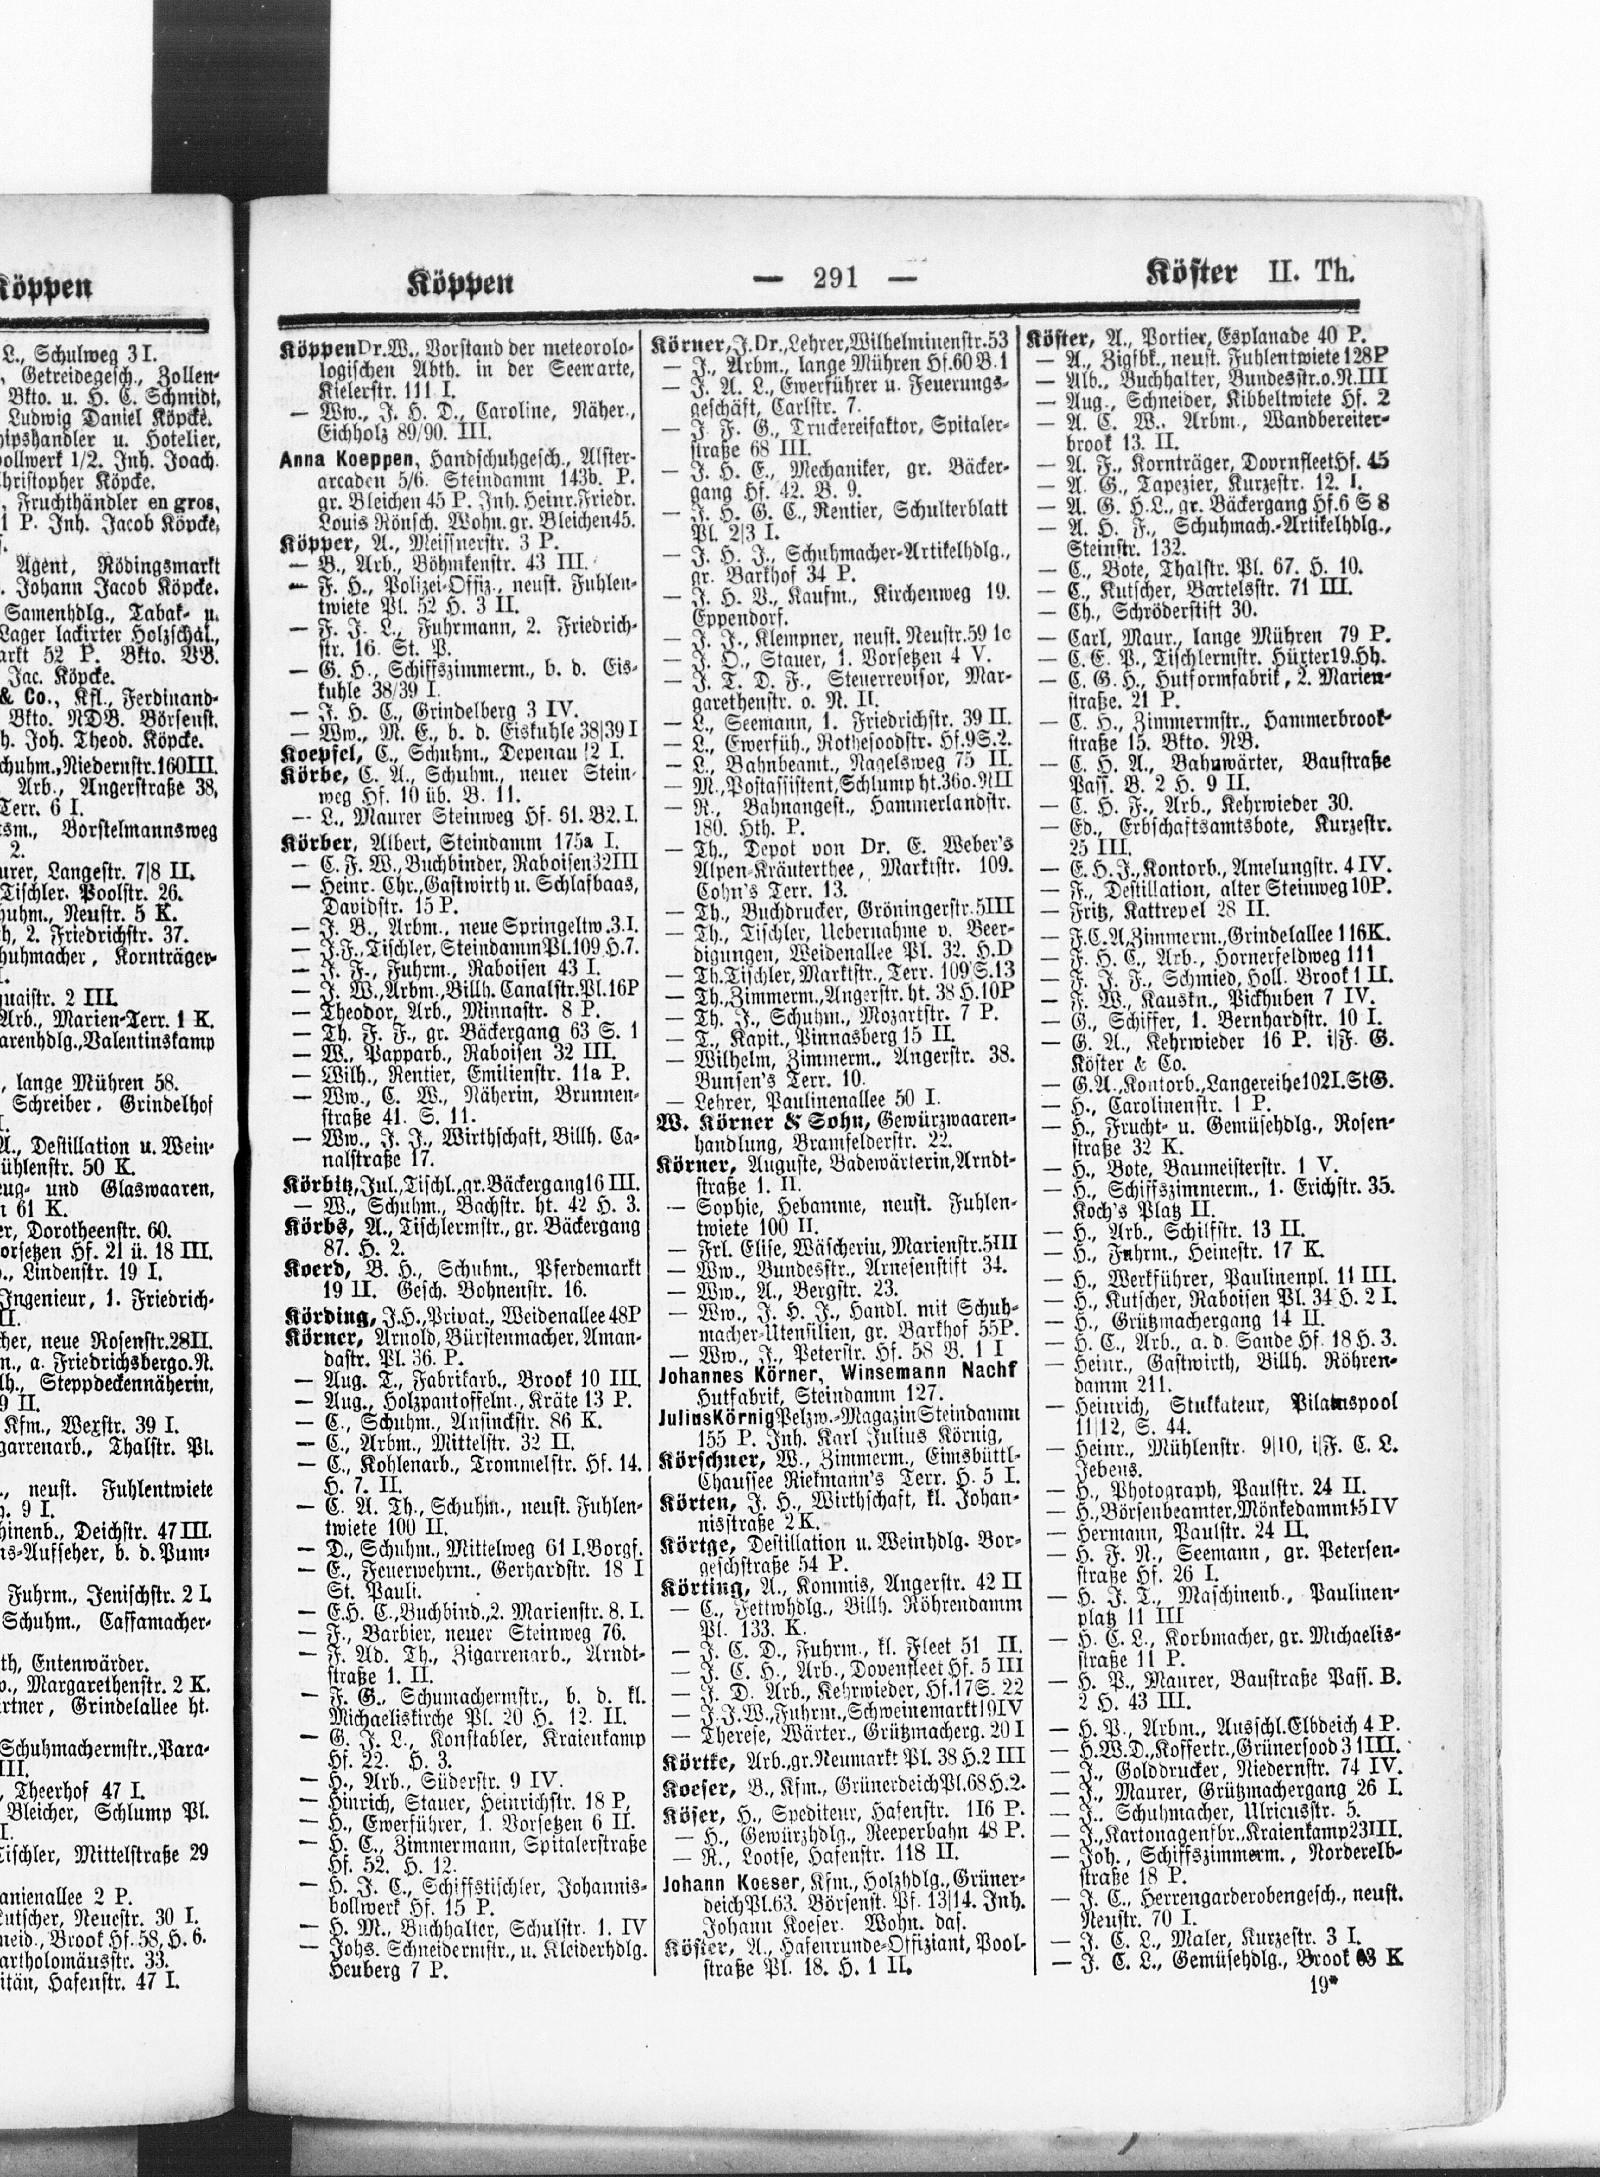 Köppen
L., Schulweg 3 I.
, Getreidegesch., Zollen-
Bkto. u. H. C. Schmidt,
Ludwig Daniel Köpcke.
hipshandler u. Hotelier,
bollwerk 1/2. Inh. Joach.
hristopher Köpcke.
, Fruchthändler en gros,
1 P. Inh. Jacob Köpcke,
Agent, Rödingsmarkt
. Johann Jacob Köpcke.
Samenhdlg., Tabak- u.
Lager lackirter Holzschal.,
arkt 52 P. Bkto. VB.
Jac. Köpcke.
& Co., Kfl., Ferdinand-
Bkto. NDB. Börsenst.
h. Joh. Theod. Köpcke.
chuhm., Niedernstr. 160 III.
Arb., Angerstraße 38,
Terr. 6 I.
tsm., Borstelmannsweg
2.
urer, Langestr. 7/8 II.
Tischler. Poolstr. 26.
huhm., Neustr. 5 K.
h, 2. Friedrichstr. 37.
huhmacher, Kornträger-
I.
quaistr. 2 III.
Arb., Marien-Terr. 1 K.
arenhdlg., Valentinskamp
, lange Mühren 58.
Schreiber, Grindelhof
I.
A., Destillation u. Wein-
ühlenstr. 50 K.
eug- und Glaswaaren,
n 61 K.
er, Dorotheenstr. 60.
orsetzen Hf. 21 ü. 18 III.
b., Lindenstr. 19 I.
Ingenieur, 1. Friedrich-
II.
cher, neue Rosenstr. 28 II.
n., a. Friedrichsberg o. N.
lh., Steppdeckennäherin,
9 II.
Kfm., Wexstr. 39 I.
garrenarb., Thalstr. Pl.
., neust. Fuhlentwiete
h. 9 I.
hinenb., Deichstr. 47 III.
ns-Aufseher, b. d. Pum-
Fuhrm., Jenischstr. 2 I.
Schuhm., Caffamacher-
th, Entenwärder.
w., Margarethenstr. 2 K.
ärtner, Grindelallee ht.
Schuhmachermstr., Para-
III.
, Theerhof 47 I.
Bleicher, Schlump Pl.
I.
Tischler, Mittelstraße 29
anienallee 2 P.
kutscher, Neuestr. 30 I.
neid., Brook Hf. 58, H. 6.
artholomäusstr. 33.
itän, Hafenstr. 47 I.
Köppen — 291 — Köster II. Th.
Köppen Dr. W., Vorstand der meteorolo-
logischen Abth. in der Seewarte,
Kielerstr. 111 I.
— Ww., J. H. D., Caroline, Näher.,
Eichholz 89/90. III.
Anna Koeppen, Handschuhgesch., Alster-
arcaden 5/6. Steindamm 143b. P.
gr. Bleichen 45 P. Inh. Heinr. Friedr.
Louis Rönsch. Wohn. gr. Bleichen 45.
Köpper, A., Meissnerstr. 3 P.
— B., Arb., Böhmkenstr. 43 III.
— F. H., Polizei-Offiz., neust. Fuhlen-
twiete Pl. 52 H. 3 II.
— F. J. L., Fuhrmann, 2. Friedrich-
str. 16. St. P.
— G. H., Schiffszimmerm., b. d. Eis-
kuhle 38/39 I.
— J. H. C., Grindelberg 3 IV.
— Ww., M. E., b. d. Eiskuhle 38/39 I
Koepsel, C., Schuhm., Depenau 2 I.
Körbe, C. A., Schuhm., neuer Stein-
weg Hf. 10 üb. B. 11.
— L., Maurer Steinweg Hf. 61. B2. I.
Körber, Albert, Steindamm 175a I.
— C. F. W., Buchbinder, Raboisen 32 III
— Heinr. Chr., Gastwirth u. Schlafbaas,
Davidstr. 15 P.
— J. B., Arbm., neue Springeltw. 3. I.
— J. F., Tischler, Steindamm Pl. 109 H. 7.
— J. F., Fuhrm., Raboisen 43 I.
— J. W., Arbm., Billh. Canalstr. Pl. 16 P
— Theodor, Arb., Minnastr. 8 P.
— Th. F. F., gr. Bäckergang 63 S. 1
— W., Papparb., Raboisen 32 III.
— Wilh., Rentier, Emilienstr. 11a P.
— Ww., C. W., Näherin, Brunnen-
straße 41. S. 11.
— Ww., J. J., Wirthschaft, Billh. Ca-
nalstraße 17.
Körbitz, Jul., Tischl., gr. Bäckergang 16 III.
— W., Schuhm., Bachstr. ht. 42 H. 3.
Körbs, A., Tischlermstr., gr. Bäckergang
87. H. 2.
Koerd, B. H., Schuhm., Pferdemarkt
19 II. Gesch. Bohnenstr. 16.
Körding, J. H., Privat., Weidenallee 48 P
Körner, Arnold, Bürstenmacher, Aman-
dastr. Pl. 36. P.
— Aug. T., Fabrikarb., Brook 10 III.
— Aug., Holzpantoffelm., Kräte 13 P.
— C., Schuhm., Ausinckstr. 86 K.
— C., Arbm., Mittelstr. 32 II.
— C., Kohlenarb., Trommelstr. Hf. 14.
H. 7. II.
— C. A. Th., Schuhm., neust. Fuhlen-
twiete 100 II.
— D., Schuhm., Mittelweg 61 I. Borgf.
— E., Feuerwehrm., Gerhardstr. 18 I
St. Pauli.
— E. H. C., Buchbind., 2. Marienstr. 8. I.
— F., Barbier, neuer Steinweg 76.
— F. Ad. Th., Zigarrenarb., Arndt-
straße 1. II.
— F. G., Schumachermstr., b. d. kl.
Michaeliskirche Pl. 20 H. 12. II.
— G. J. L., Konstabler, Kraienkamp
Hf. 22. H. 3.
— H., Arb., Süderstr. 9 IV.
— Hinrich, Stauer, Heinrichstr. 18 P.
— H., Ewerführer, 1. Vorsetzen 6 II.
— H. C., Zimmermann, Spitalerstraße
Hf. 52. H. 12.
— H. J. C., Schiffstischler, Johannis-
bollwerk Hf. 15 P.
— H. M., Buchhalter, Schulstr. 1. IV
— Johs. Schneidermstr., u. Kleiderhdlg.
Heuberg 7 P.
Körner, J. Dr., Lehrer, Wilhelminenstr. 53
— J., Arbm., lange Mühren Hf. 60 B. 1
— J. A. L., Ewerführer u. Feuerungs-
geschäft, Carlstr. 7.
— J. F. G., Druckereifaktor, Spitaler-
straße 68 III.
— J. H. E., Mechaniker, gr. Bäcker-
gang Hf. 42. B. 9.
— J. H. G. C., Rentier, Schulterblatt
Pl. 2/3 I.
— J. H. J., Schuhmacher-Artikelhdlg.,
gr. Barkhof 34 P.
— J. H. V., Kaufm., Kirchenweg 19.
Eppendorf.
— J. J., Klempner, neust. Neustr. 59 1c
— J. O., Stauer, 1. Vorsetzen 4 V.
— J. T. D. F., Steuerrevisor, Mar-
garethenstr. o. N. II.
— L., Seemann, 1. Friedrichstr. 39 II.
— L., Ewerfüh., Rothesoodstr. Hf. 9 S. 2.
— L., Bahnbeamt., Nagelsweg 75 II.
— M., Postassistent, Schlump ht. 36 o. N II
— R., Bahnangest., Hammerlandstr.
180. Hth. P.
— Th., Depot von Dr. E. Weber's
Alpen-Kräuterthee, Marktstr. 109.
Cohn's Terr. 13.
— Th., Buchdrucker, Gröningerstr. 5 III
— Th., Tischler, Uebernahme v. Beer-
digungen, Weidenallee Pl. 32. H. D
— Th. Tischler, Marktstr., Terr. 109 S. 13
— Th., Zimmerm., Angerstr. ht. 38 H. 10 P
— Th. J., Schuhm., Mozartstr. 7 P.
— T., Kapit., Pinnasberg 15 II.
— Wilhelm, Zimmerm., Angerstr. 38.
Bunsen's Terr. 10.
— Lehrer, Paulinenallee 50 I.
W. Körner & Sohn, Gewürzwaaren-
handlung, Bramfelderstr. 22.
Körner, Auguste, Badewärterin, Arndt-
straße 1. II.
— Sophie, Hebamme, neust. Fuhlen-
twiete 100 II.
— Frl. Elise, Wäscherin, Marienstr. 5 III
— Ww., Bundesstr., Arnesenstift 34.
— Ww., A., Bergstr. 23.
— Ww., J. H. J., Handl. mit Schuh-
macher-Utensilien, gr. Barkhof 55 P.
— Ww., J., Peterstr. Hf. 58 B. 1 I
Johannes Körner, Winsemann Nachf
Hutfabrik, Steindamm 127.
Julius Körnig Pelzw.-Magazin Steindamm
155 P. Inh. Karl Julius Körnig.
Körschner, W., Zimmerm., Eimsbüttl-
Chaussee Riekmann's Terr. H. 5 I.
Körten, J. H., Wirthschaft, kl. Johan-
nisstraße 2 K.
Körtge, Destillation u. Weinhdlg. Bor-
geschstraße 54 P.
Körting, A., Kommis, Angerstr. 42 II
— C., Fettwhdlg., Billh. Röhrendamm
Pl. 133. K.
— J. C. D., Fuhrm., kl. Fleet 51 II.
— J. C. H., Arb., Dovenfleet Hf. 5 III
— J. D. Arb., Kehrwieder, Hf. 17 S. 22
— J. J. W., Fuhrm., Schweinemarkt 19 IV
— Therese, Wärter., Grützmacherg. 20 I
Körtke, Arb., gr. Neumarkt Pl. 38 H. 2 III
Koeser, B., Kfm., Grünerdeich Pl. 68 H. 2.
Köser, H., Spediteur, Hafenstr. 116 P.
— H., Gewürzhdlg., Reeperbahn 48 P.
— R., Lootse, Hafenstr. 118 II.
Johann Koeser, Kfm., Holzhdlg., Grüner-
deich Pl. 63. Börsenst. Pf. 13/14. Inh.
Johann Koeser. Wohn. das.
Köster, A., Hafenrunde-Offiziant, Pool-
straße Pl. 18. H. 1 II.
Köster, A., Portier, Esplanade 40 P.
— A., Zigfbk., neust. Fuhlentwiete 128 P
— Alb., Buchhalter, Bundesstr. o. N. III
— Aug., Schneider, Kibbeltwiete Hf. 2
— A. C. W., Arbm., Wandbereiter-
brook 13. II.
— A. F., Kornträger, Dovrnfleet Hf. 45
— A. G., Tapezier, Kurzestr. 12. I.
— A. G. H. L., gr. Bäckergang Hf. 6 S 8
— A. H. F., Schuhmach.-Artikelhdlg.,
Steinstr. 132.
— C., Bote, Thalstr. Pl. 67. H. 10.
— C., Kutscher, Bartelsstr. 71 III.
— Ch., Schröderstift 30.
— Carl, Maur., lange Mühren 79 P.
— C. E. P., Tischlermstr. Hüxter 19. Hh.
— C. G. H., Hutformfabrik, 2. Marien-
straße. 21 P.
— C. H., Zimmermstr., Hammerbrook-
straße 15. Bkto. NB.
— C. H. A., Bahnwärter, Baustraße
Pass. B. 2 H. 9 II.
— C. H. F., Arb., Kehrwieder 30.
— Ed., Erbschaftsamtsbote, Kurzestr.
25 III.
— E. H. J., Kontorb., Amelungstr. 4 IV.
— F., Destillation, alter Steinweg 10 P.
— Fritz, Kattrepel 28 II.
— F. C. A. Zimmerm., Grindelallee 116 K.
— F. H. C., Arb., Hornerfeldweg 111
— F. J. F., Schmied, Holl. Brook 1 II.
— F. W., Kauskn., Pickhuben 7 IV.
— G., Schiffer, 1. Bernhardstr. 10 I.
— G. A., Kehrwieder 16 P. i/F. G.
Köster & Co.
— G. A., Kontorb., Langereihe 102 I. St G.
— H., Carolinenstr. 1 P.
— H., Frucht- u. Gemüsehdlg., Rosen-
straße 32 K.
— H., Bote, Baumeisterstr. 1 V.
— H., Schiffszimmerm., 1. Erichstr. 35.
Koch's Platz II.
— H., Arb., Schilfstr. 13 II.
— H., Fuhrm., Heinestr. 17 K.
— H., Werkführer, Paulinenpl. 11 III.
— H., Kutscher, Raboisen Pl. 34 H. 2 I.
— H., Grützmachergang 14 II.
— H. C., Arb., a. d. Sande Hf. 18 H. 3.
— Heinr., Gastwirth, Billh. Röhren-
damm 211.
— Heinrich, Stukkateur, Pilatuspool
11/12, S. 44.
— Heinr., Mühlenstr. 9/10, i/F. C. L.
Jebens.
— H., Photograph, Paulstr. 24 II.
— H., Börsenbeamter, Mönkedamm 15 IV
— Hermann, Paulstr. 24 II.
— H. F. N., Seemann, gr. Petersen-
straße Hf. 26 I.
— H. J. T., Maschinenb., Paulinen-
platz 11 III
— H. C. L., Korbmacher, gr. Michaelis-
straße 11 P.
— H. P., Maurer, Baustraße Pass. B.
2 H. 43 III.
— H. P., Arbm., Ausschl. Elbdeich 4 P.
— H. W. D., Koffertr., Grünersood 31 III.
— J., Golddrucker, Niedernstr. 74 IV.
— J., Maurer, Grützmachergang 26 I.
— J., Schuhmacher, Ulricusstr. 5.
— J., Kartonagenfbr., Kraienkamp 23 III.
— Joh., Schiffszimmerm., Norderelb-
straße 18 P.
— J. C., Herrengarderobengesch., neust.
Neustr. 70 I.
— J. C. L., Maler, Kurzestr. 3 I.
— J. C. L., Gemüsehdlg., Brook 63 K
19*